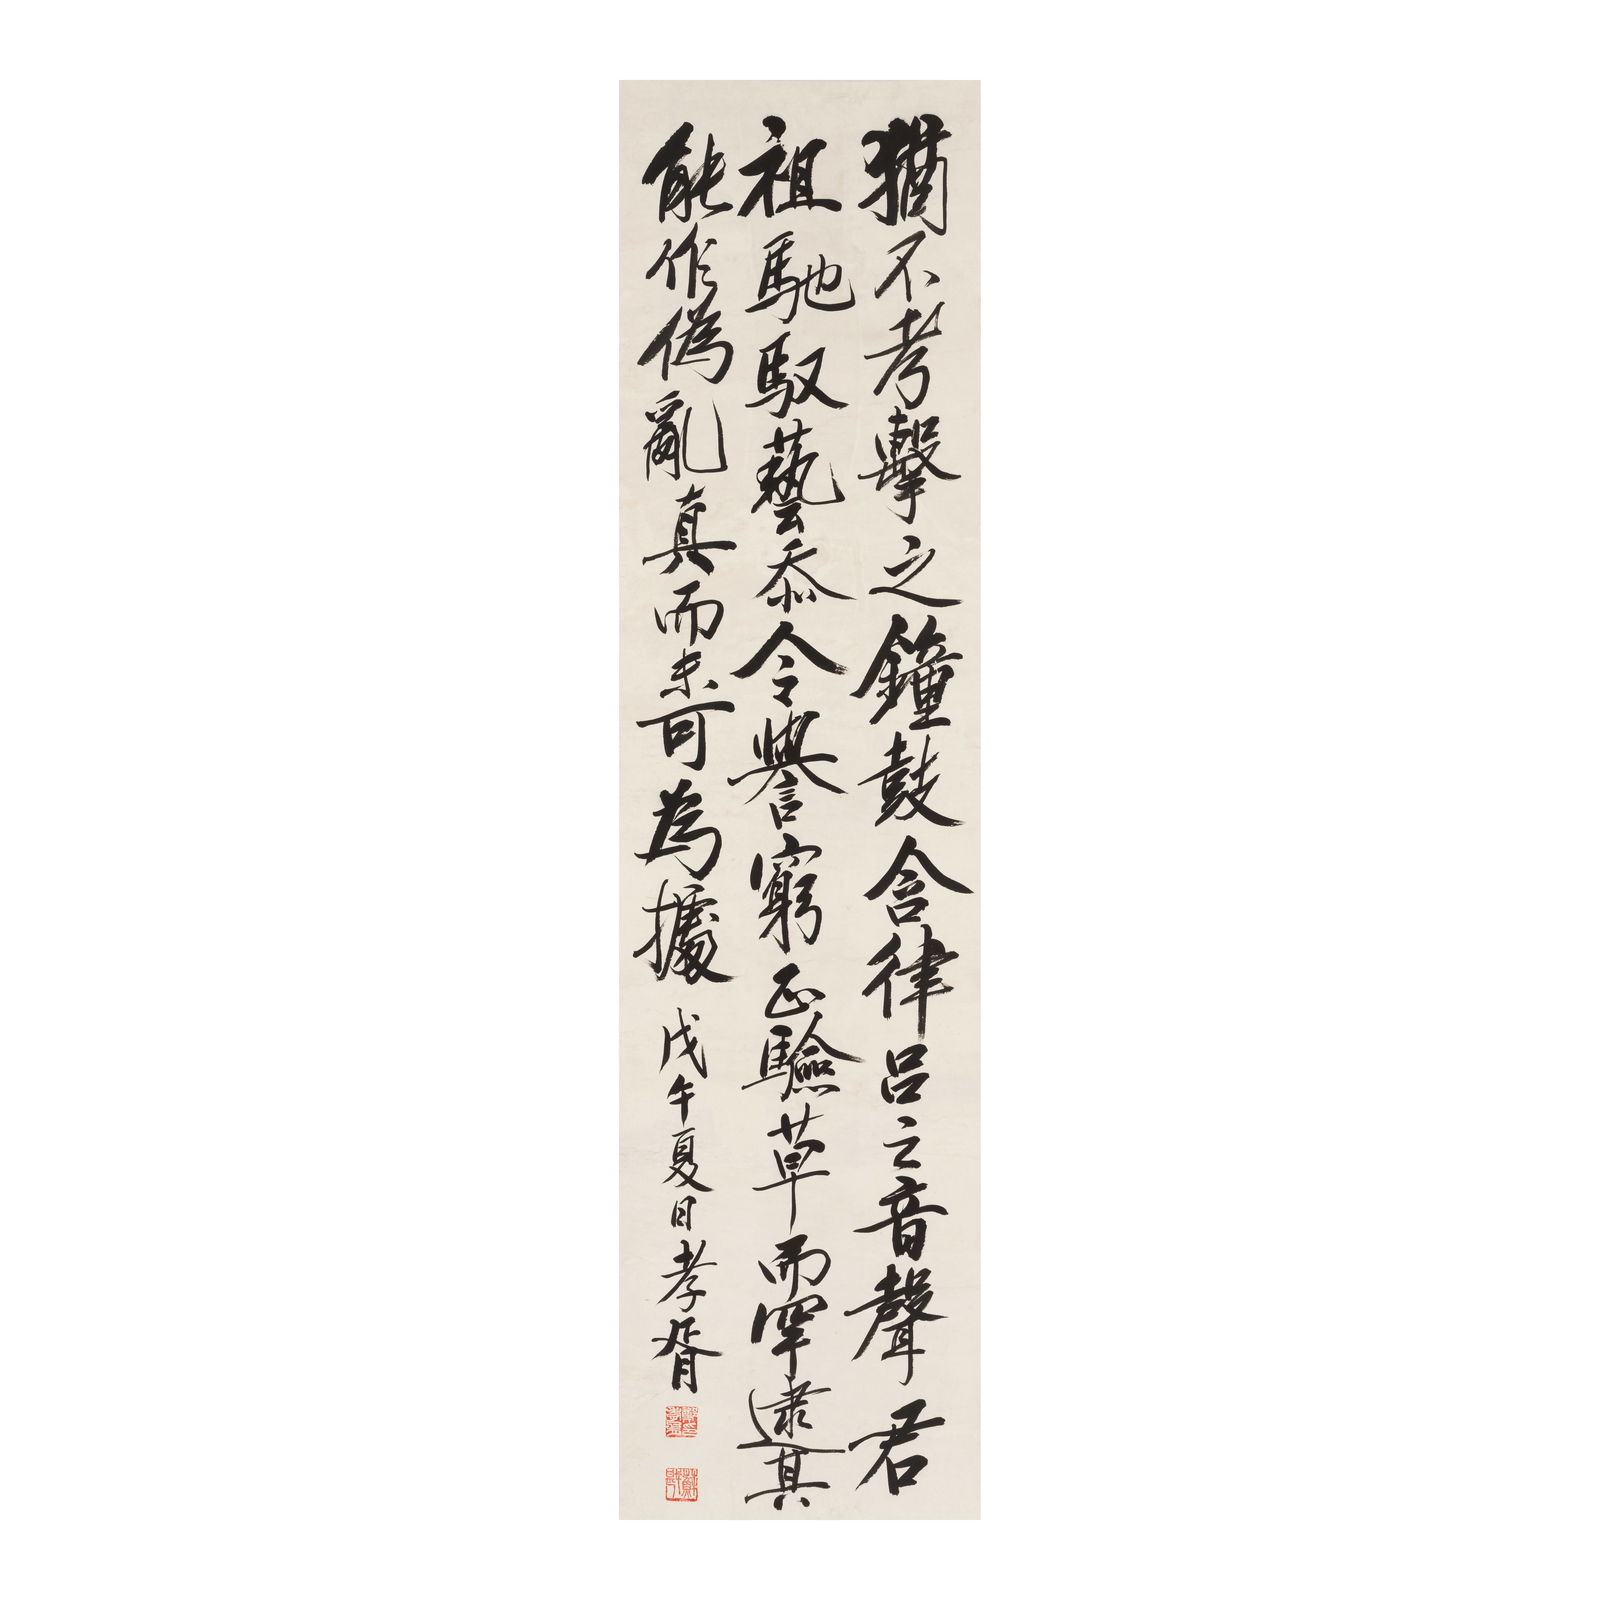 猶不考擊之鐘鼓含律呂之音聲君
祖馳馭藝忝令譽窮正驗草而罕逮其
能作偽亂真而未可為據
戊午夏日孝胥